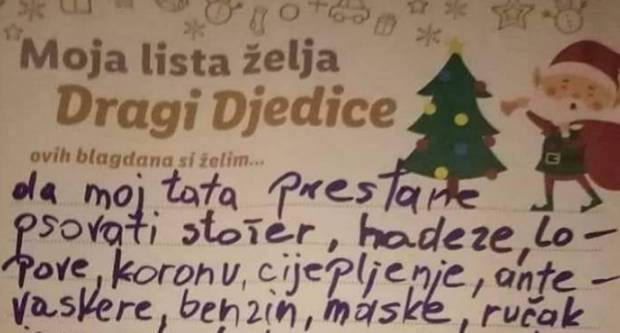 Moja lista želja
Dragi Djedice
ovih blagdana si želim...
da moj tata prestane
psovati stožer, hadeze, lo-
pove, koronu, cijepljenje, ante-
vaksere, benzin, maske, ručak